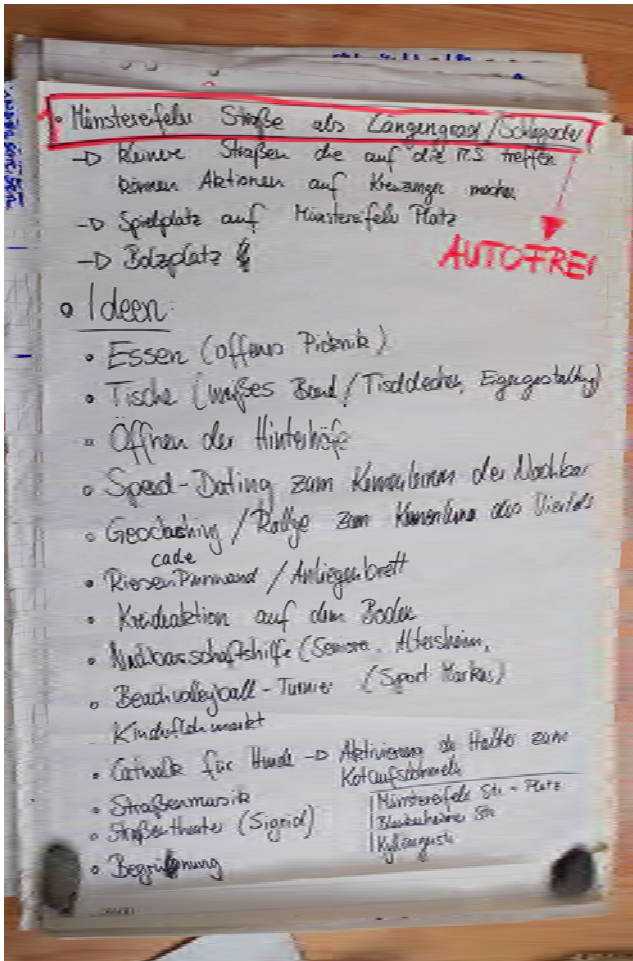 • Münstereifeler Straße als Längengrad/Schlagader
→ kleinere Straßen die auf die M.S. treffen
können Aktionen auf Kreuzungen machen
→ Spielplatz auf Münstereifeler Platz
→ Bolzplatz
AUTOFREI
• Ideen:
• Essen (offenes Picknick)
• Tische (weißes Band / Tischdecken, Eigengestaltung)
• Öffnen der Hinterhöfe
• Speed-Dating zum Kennenlernen der Nachbar
• Geocaching / Rallye zum Kennenlernen des Viertels
cache
• Riesen Pinnwand / Anliegenbrett
• Kreideaktion auf dem Boden
• Nachbarschaftshilfe (Senioren, Altersheim,
• Beachvolleyball-Turnier (Sport Markus)
Kinderflohmarkt
• Catwalk für Hunde → Aktivierung der Halter zum
Kotaufsammeln
• Straßenmusik
• Straßentheater (Sigrid)
• Begrünung
Münstereifeler Str - Platz
Blankenheimer Str